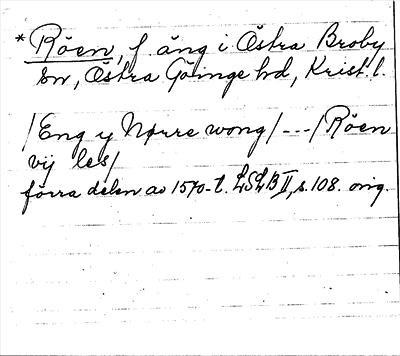 * Röen, f. äng i Östra Broby
sn, Östra Göinge hd, Krist. l.
/Eng y Nørre wong/ --- /Röen
vij les/
förra delen av 1570-t. LSLB II, s. 108. orig.